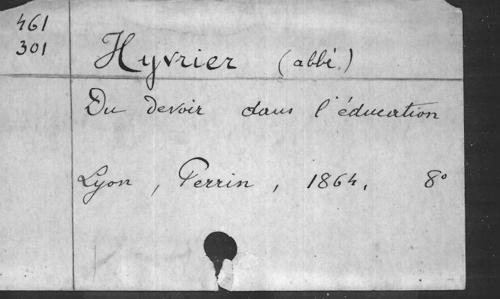 461
301
Hyvrier (abbé.)
Du devoir dans l'éducation
Lyon, Perrin, 1864, 8°